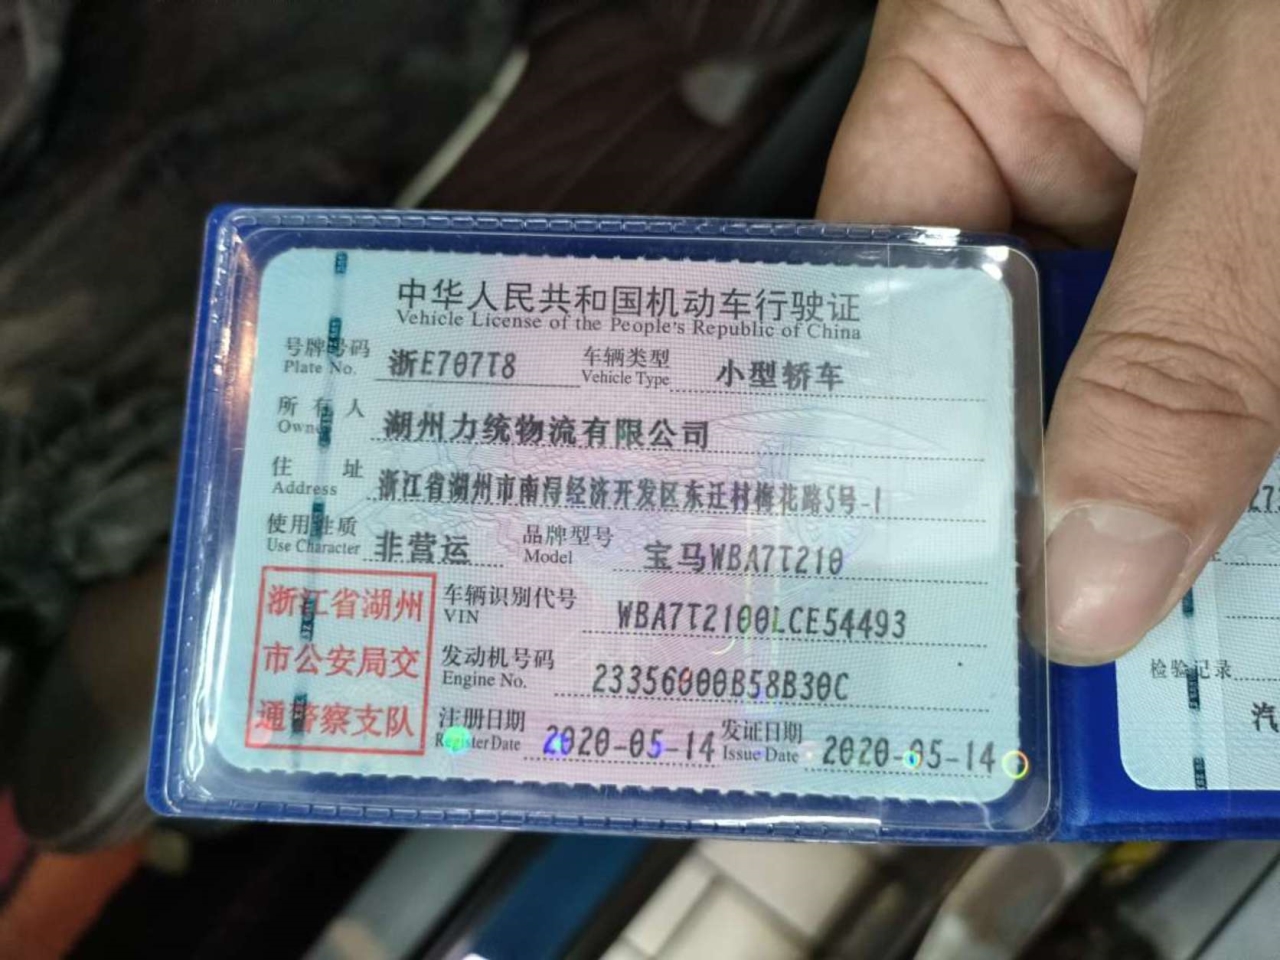 中华人民共和国机动车行驶证
Vehicle License of the People's Republic of China
号牌号码 浙E707T8 车辆类型 小型轿车
Plate No. Vehicle Type
所有人 湖州力统物流有限公司
Owner
住址 浙江省湖州市南浔经济开发区东迁村梅花路5号-1
Address
使用性质 非营运 品牌型号 宝马WBA7T210
Use Character Model
浙江省湖州
市公安局交
通警察支队
车辆识别代号 WBA7T2100LCE54493
VIN
发动机号码 23356000B58B30C
Engine No.
注册日期 2020-05-14 发证日期 2020-05-14
Register Date Issue Date
检验记录
汽